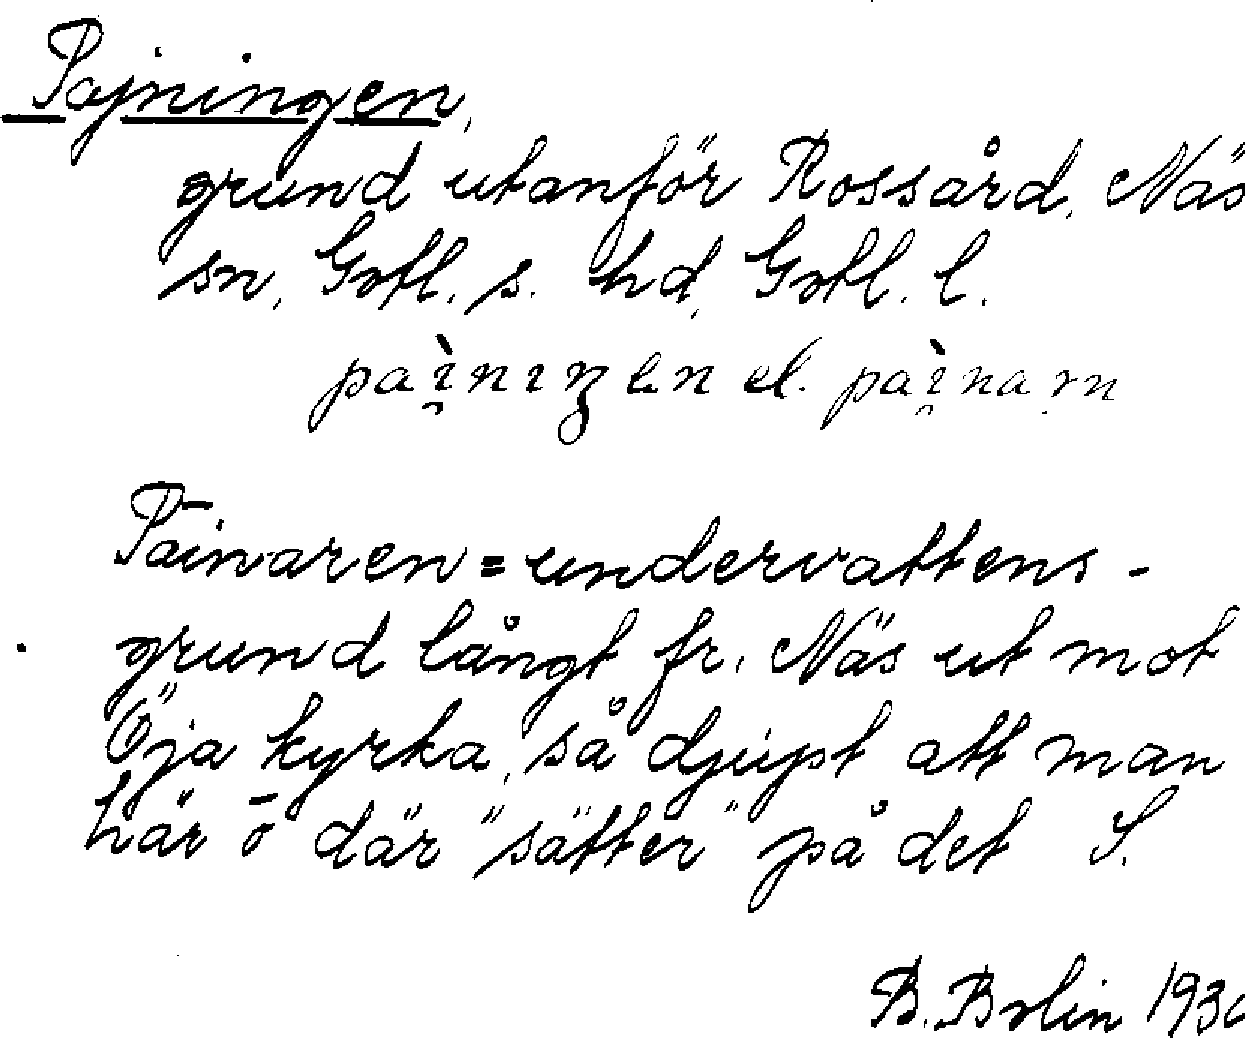 Pajningen,
grund utanför Rossård, Näs
sn, Gotl. s. hd, Gotl. l.
el.
Painaren = undervattens-
grund långt fr. Näs ut mot
Öja kyrka, så djupt att man
här o där "sätter" på det S.
B. Bolin